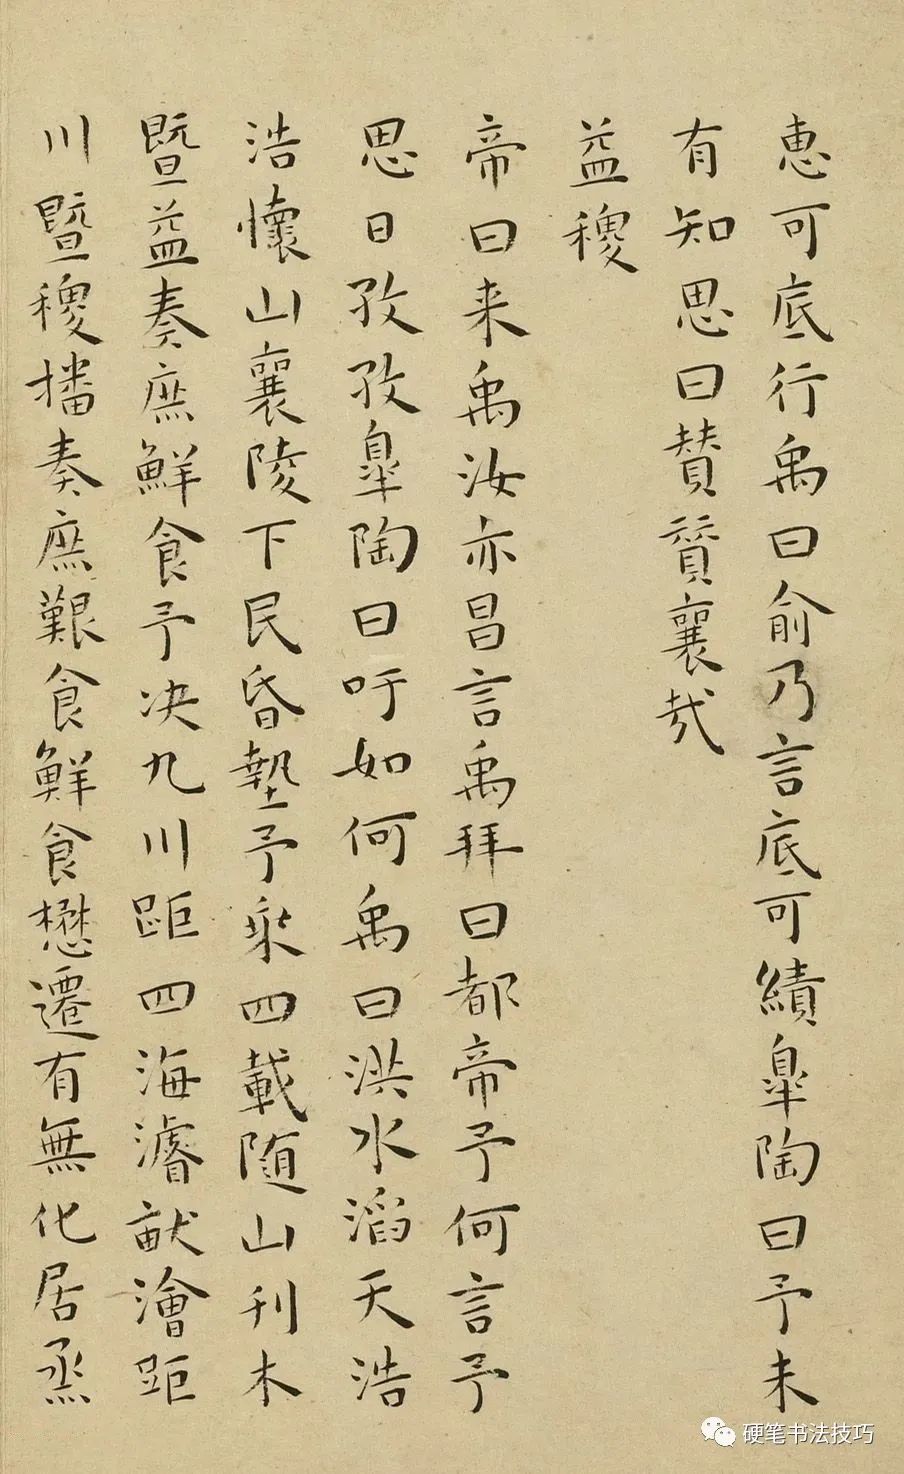 惠可底行禹曰俞乃言底可績皐陶曰予未
有知思曰贊贊襄哉
益稷
帝曰来禹汝亦昌言禹拜曰都帝予何言予
思日孜孜皐陶曰吁如何禹曰洪水滔天浩
浩懷山襄陵下民昏墊予乘四載随山刊木
暨益奏庶鮮食予决九川距四海濬畎澮距
川暨稷播奏庶艱食鮮食懋遷有無化居烝
硬笔书法技巧